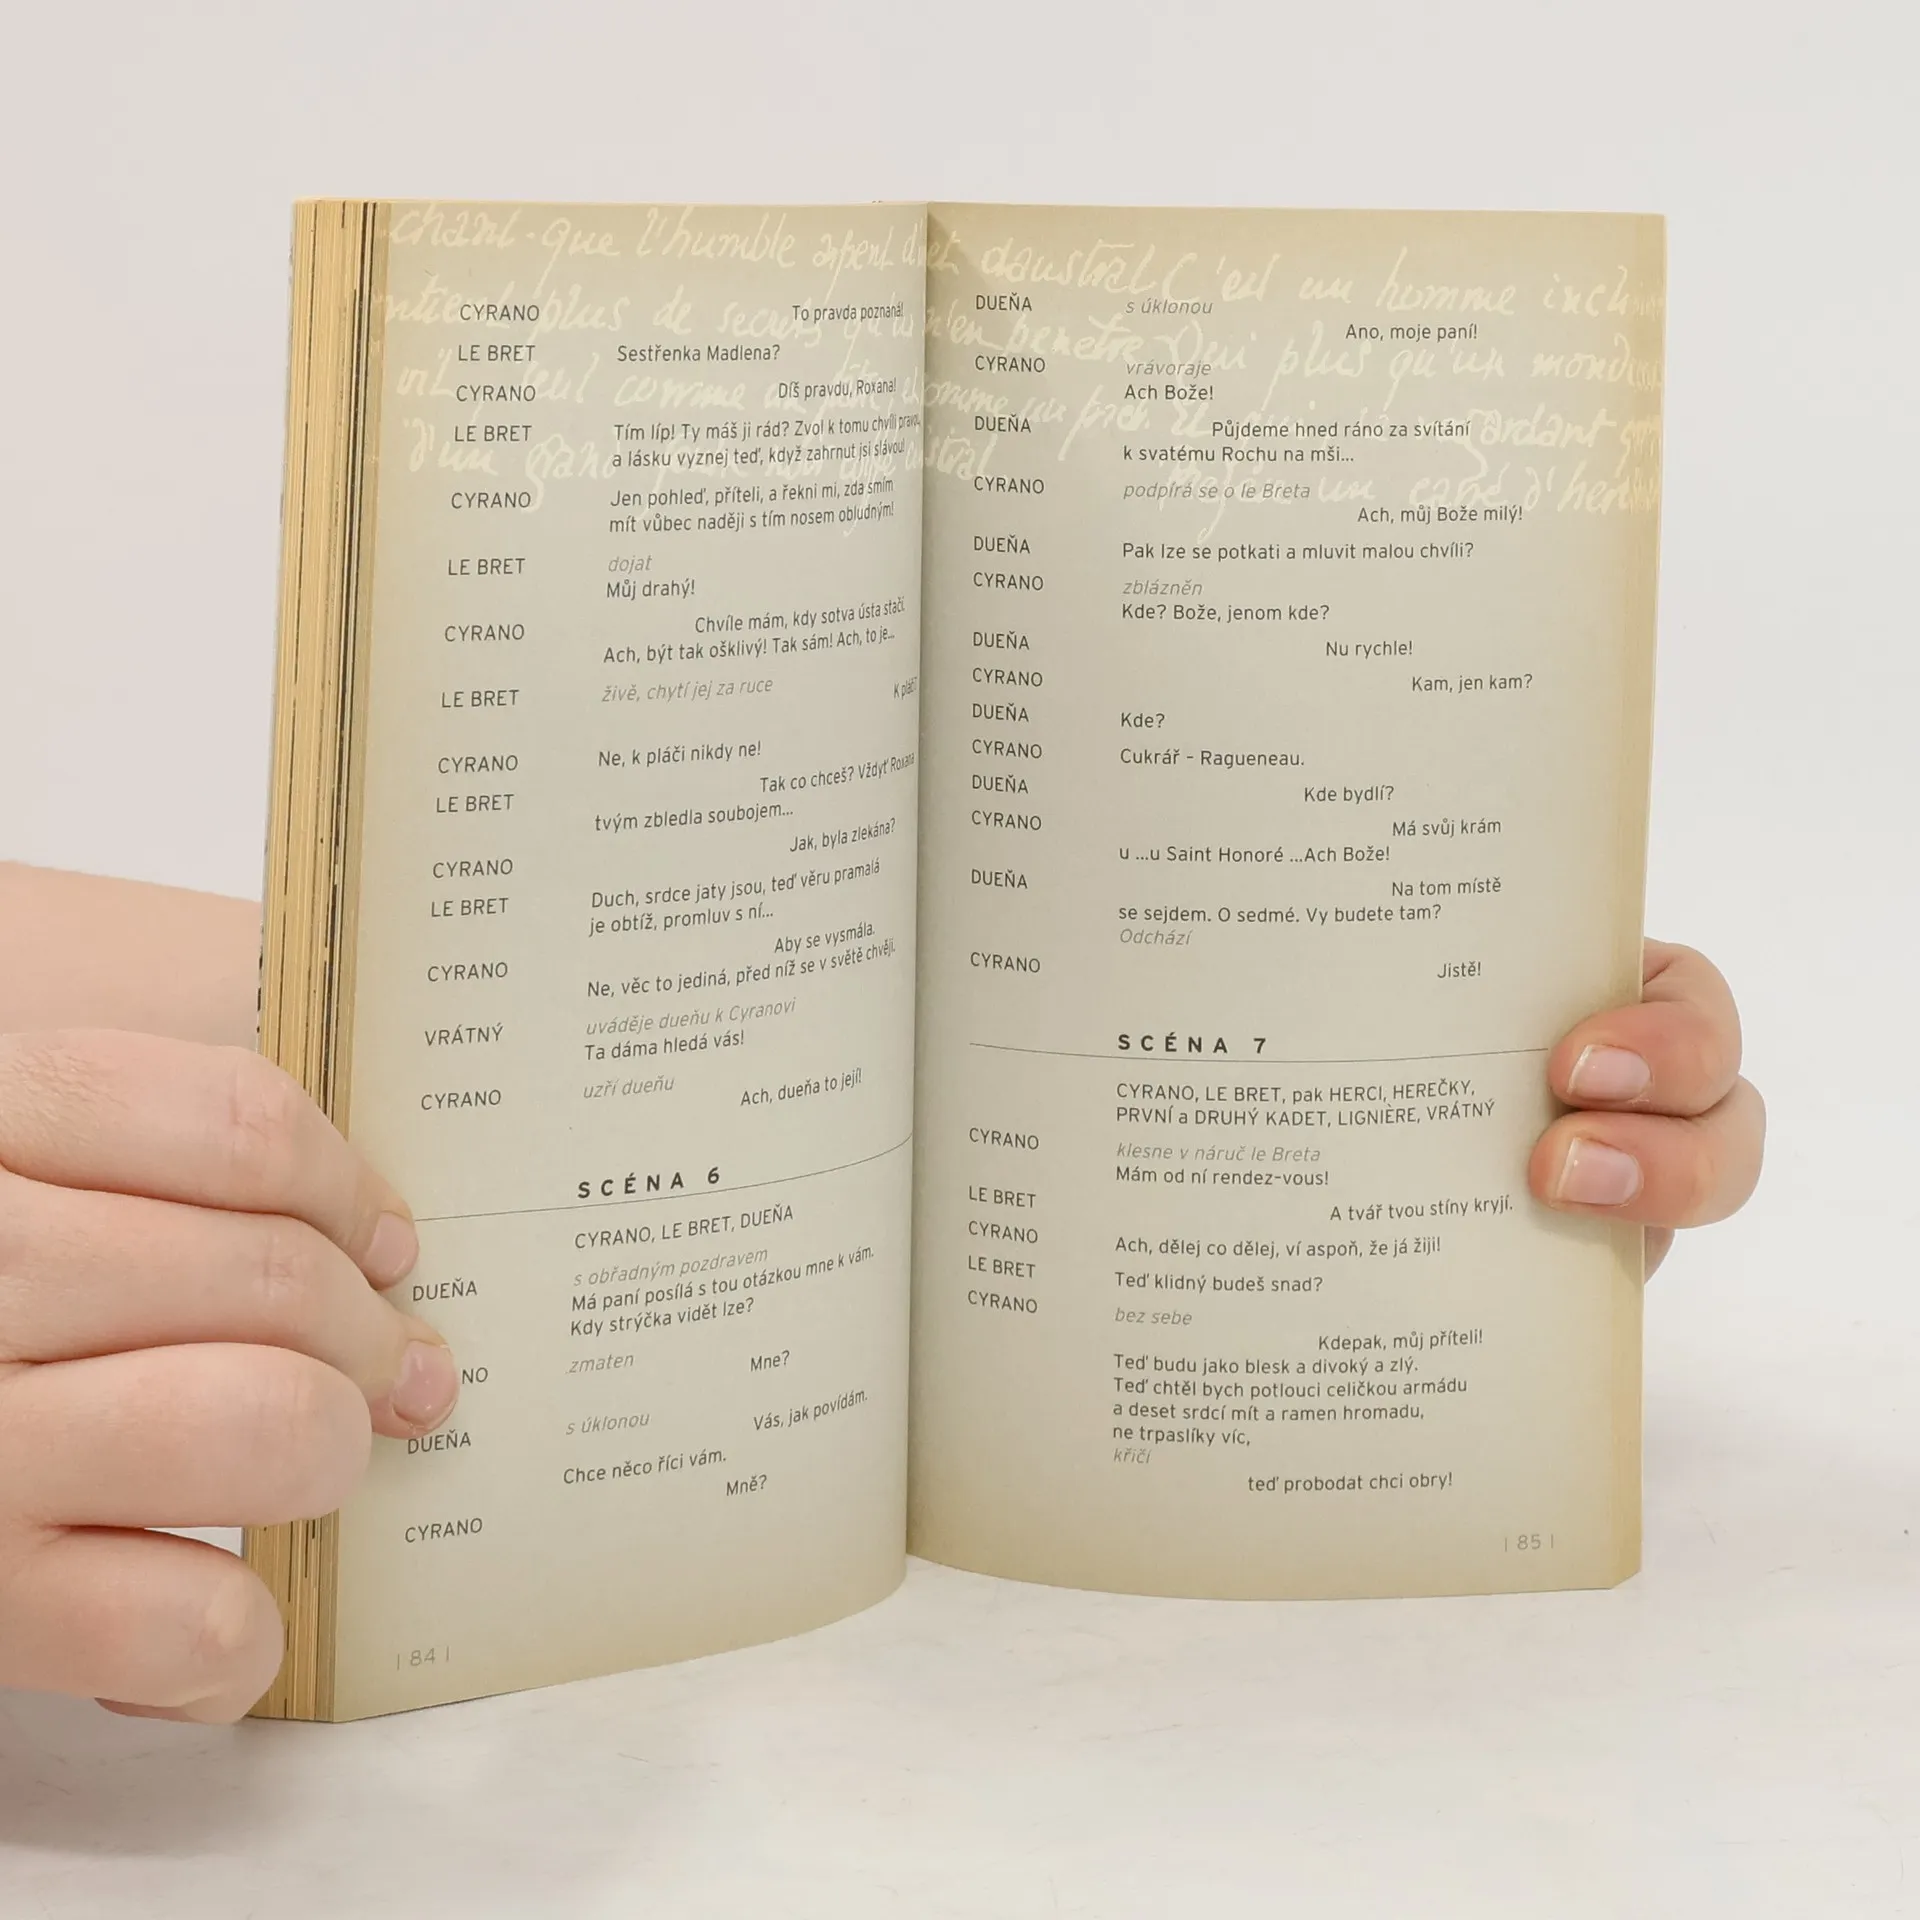 chant que l'humble
CYRANO To pravda poznaná!
LE BRET Sestřenka Madlena?
CYRANO Díš pravdu, Roxana!
LE BRET Tím líp! Ty máš ji rád? Zvol k tomu chvíli pravou,
a lásku vyznej teď, když zahrnut jsi slávou!
CYRANO Jen pohleď, příteli, a řekni mi, zda smím
mít vůbec naději s tím nosem obludným!
LE BRET dojat
Můj drahý!
CYRANO Chvíle mám, kdy sotva ústa stačí.
Ach, být tak ošklivý! Tak sám! Ach, to je...
LE BRET živě, chytí jej za ruce
K pláči?
CYRANO Ne, k pláči nikdy ne!
LE BRET Tak co chceš? Vždyť Roxana
tvým zbledla soubojem...
CYRANO Jak, byla zlekána?
LE BRET Duch, srdce jaty jsou, teď věru pramalá
je obtíž, promluv s ní...
CYRANO Aby se vysmála.
Ne, věc to jediná, před níž se v světě chvěji.
VRÁTNÝ uváděje dueňu k Cyranovi
Ta dáma hledá vás!
CYRANO uzří dueňu
Ach, dueňa to její!
SCÉNA 6
CYRANO, LE BRET, DUEŇA
DUEŇA s obřadným pozdravem
Má paní posílá s tou otázkou mne k vám.
Kdy strýčka vidět lze?
NO zmaten
Mne?
DUEŇA s úklonou
Vás, jak povídám.
Chce něco říci vám.
CYRANO Mně?
| 84 |
daustral C'est un homme
DUEŇA s úklonou
Ano, moje paní!
CYRANO vrávoraje
Ach Bože!
DUEŇA Půjdeme hned ráno za svítání
k svatému Rochu na mši...
CYRANO podpírá se o le Breta
Ach, můj Bože milý!
DUEŇA Pak lze se potkati a mluvit malou chvíli?
CYRANO zblázněn
Kde? Bože, jenom kde?
DUEŇA Nu rychle!
CYRANO Kam, jen kam?
DUEŇA Kde?
CYRANO Cukrář - Ragueneau.
DUEŇA Kde bydlí?
CYRANO Má svůj krám
u ...u Saint Honoré ...Ach Bože!
DUEŇA Na tom místě
se sejdem. O sedmé. Vy budete tam?
Odchází
CYRANO Jistě!
SCÉNA 7
CYRANO, LE BRET, pak HERCI, HEREČKY,
PRVNÍ a DRUHÝ KADET, LIGNIÈRE, VRÁTNÝ
CYRANO klesne v náruč le Breta
Mám od ní rendez-vous!
LE BRET A tvář tvou stíny kryjí.
CYRANO Ach, dělej co dělej, ví aspoň, že já žiji!
LE BRET Teď klidný budeš snad?
CYRANO bez sebe
Kdepak, můj příteli!
Teď budu jako blesk a divoký a zlý.
Teď chtěl bych potlouci celičkou armádu
a deset srdcí mít a ramen hromadu,
ne trpaslíky víc,
křičí
teď probodat chci obry!
| 85 |